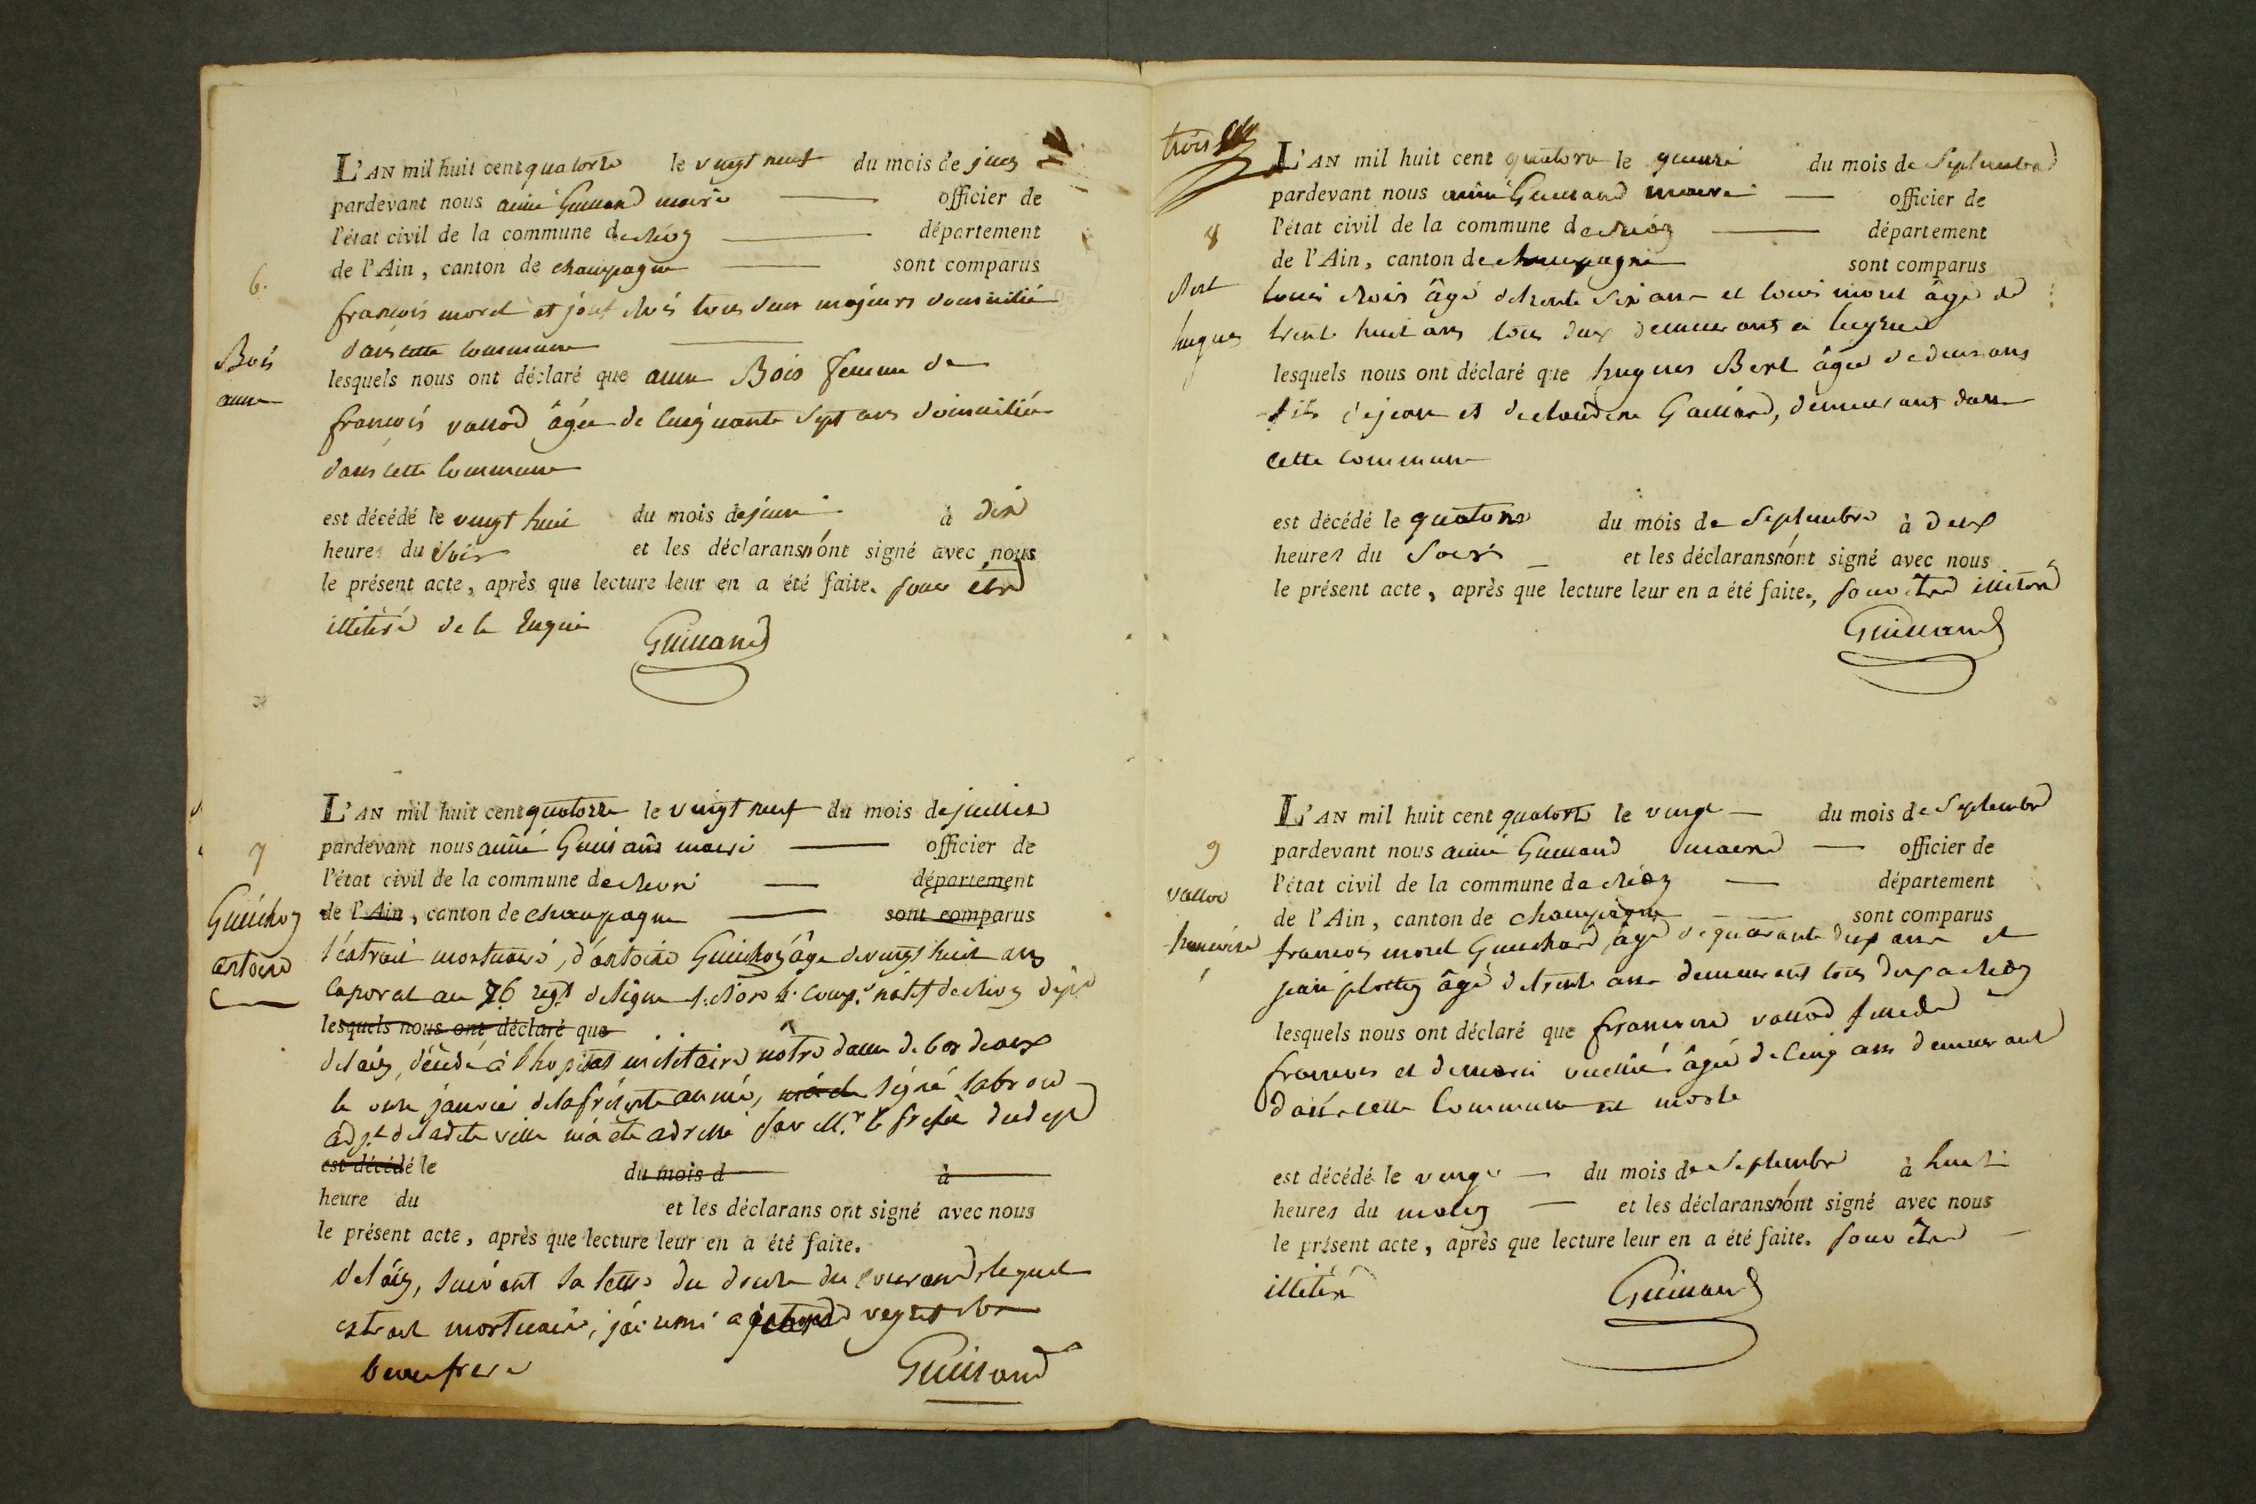 6.
Bois
anne
L'AN mil huit cent quatorze le vingt neuf du mois de juin
pardevant nous aimé Guilland maire officier de
l'état civil de la commune de département
de l'Ain, canton de champagne sont comparus
françois morel et tous deux majeurs domicilié
dans cette commune
lesquels nous ont déclaré que anne Bois femme de
françois vallod âgée de cinquante sept ans domiciliée
dans cette commune
est décédé le vingt huit du mois de juin à dix
heures du soir et les déclarans n'ont signé avec nous
le présent acte, après que lecture leur en a été faite. pour être
illitéré de le enquis
Guilland
7
Guichoz
antoine
L'AN mil huit cent quatorze le vingt neuf du mois de juillet
pardevant nous aimé maire officier de
l'état civil de la commune de département
de l'Ain, canton de champagne sont comparus
l'extrait mortuaire, d'antoine Guichoz âgé de vingt huit ans
caporal au 76 regt de ligne natif de
lesquels nous ont déclaré que
de l'ain, décédé à l'hopital militaire nôtre dame de bordeaux
le onze janvier de la présente année, signé
adjt de ladite ville m'a été adressé par Mr le
est décédé le du mois d à
heure du et les déclarans ont signé avec nous
le présent acte, après que lecture leur en a été faite.
de l'ain, suivant sa lettre du du courand, lequel
extrait mortuaire, j'ai remi a
beaufrere
trois
8
Bert
hugues
L'AN mil huit cent quatorze le quinze du mois de Septembre
pardevant nous aimé Guilland maire officier de
l'état civil de la commune de département
de l'Ain, canton de champagne sont comparus
louis âgé de trente six ans et louis morel âgé de
trente huit ans tous deux demeurants à
lesquels nous ont déclaré que hugues Bert âgé de deux ans
fils de jean et de claudine Gaillard, demeurant dans
cette commune
est décédé le quatorze du mois de Septembre à deux
heures du Soir et les déclarans n'ont signé avec nous
le présent acte, après que lecture leur en a été faite., pour être illitéré
Guilland
9
vallod
francoise
L'AN mil huit cent quatorze le vingt du mois de Septembre
pardevant nous aimé Guilland maire officier de
l'état civil de la commune de département
de l'Ain, canton de champagne sont comparus
francois morel Guichard âgé de quarante deux ans et
âgé de trente ans demeurants tous deux a
lesquels nous ont déclaré que francoise vallod fille de
francois et de marie âgée de cinq ans demeurant
dans cette commune est morte
est décédé le vingt du mois de Septembre à huit
heures du matin et les déclarans n'ont signé avec nous
le présent acte, après que lecture leur en a été faite. pour être
illitéré
Guilland